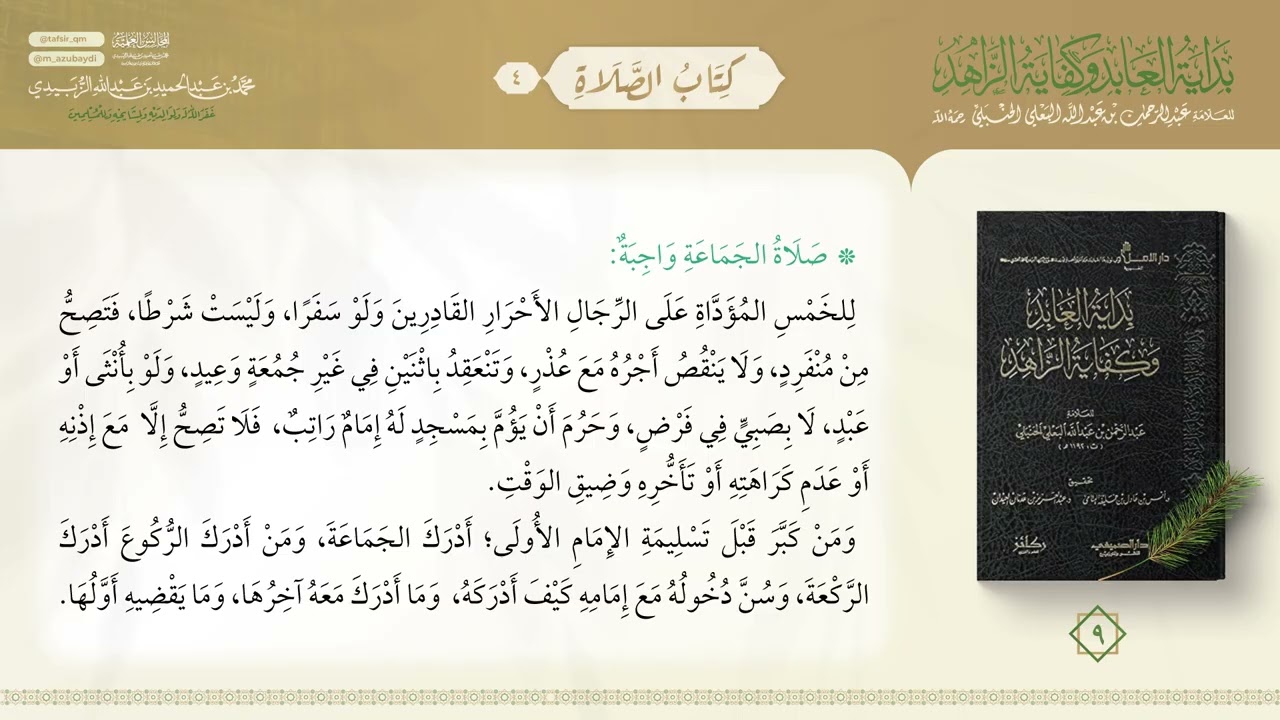 بداية العابد وكفاية الزاهد
للعلامة عبد الرحمن بن عبد الله البعلي الحنبلي رحمه الله
كِتَابُ الصَّلَاةِ
٤
@tafsir_qm
@m_azubaydi
المجالس العلمية
محمد بن عبد الحميد بن عبد الله الزبيدي
غفر الله له ولوالديه ولمشايخه وللمسلمين
* صَلَاةُ الجَمَاعَةِ وَاجِبَةٌ:
لِلخَمْسِ المُؤَدَّاةِ عَلَى الرِّجَالِ الأَحْرَارِ القَادِرِينَ وَلَوْ سَفَرًا، وَلَيْسَتْ شَرْطًا، فَتَصِحُّ
مِنْ مُنْفَرِدٍ، وَلَا يَنْقُصُ أَجْرُهُ مَعَ عُذْرٍ، وَتَنْعَقِدُ بِاثْنَيْنِ فِي غَيْرِ جُمُعَةٍ وَعِيدٍ، وَلَوْ بِأُنْثَى أَوْ
عَبْدٍ، لَا بِصَبِيٍّ فِي فَرْضٍ، وَحَرُمَ أَنْ يَؤُمَّ بِمَسْجِدٍ لَهُ إِمَامٌ رَاتِبٌ، فَلَا تَصِحُّ إِلَّا مَعَ إِذْنِهِ
أَوْ عَدَمِ كَرَاهَتِهِ أَوْ تَأَخُّرِهِ وَضِيقِ الوَقْتِ.
وَمَنْ كَبَّرَ قَبْلَ تَسْلِيمَةِ الإِمَامِ الأُولَى؛ أَدْرَكَ الجَمَاعَةَ، وَمَنْ أَدْرَكَ الرُّكُوعَ أَدْرَكَ
الرَّكْعَةَ، وَسُنَّ دُخُولُهُ مَعَ إِمَامِهِ كَيْفَ أَدْرَكَهُ، وَمَا أَدْرَكَ مَعَهُ آخِرُهَا، وَمَا يَقْضِيهِ أَوَّلُهَا.
بداية العابد
وكفاية الزاهد
للعلامة
عبد الرحمن بن عبد الله البعلي الحنبلي
(ت ١١٩٢ هـ)
تحقيق
دار الصميعي
ركائز
٩